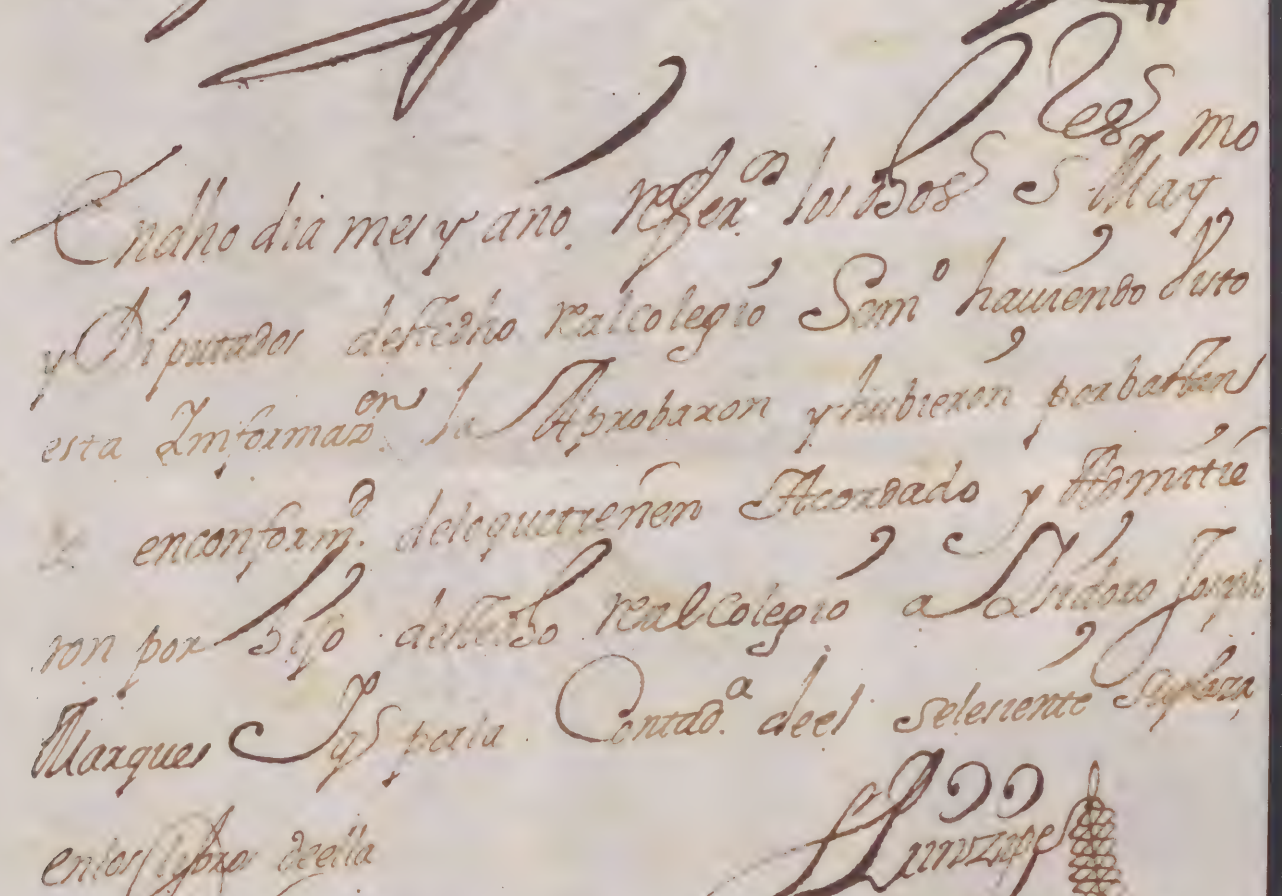 En dho dia mes y año referdo los dhos SSes Maymo
y Diputados deste dho real colegio Semo hauiendo visto
esta Informazon la Aprobaron y hubieron por bastante
en conformd de lo que tienen Acordado y Admitie
ron por hijo deste dho real Colegio a Isidoro Joseph
Marques y por la Contada de el se le siente su plaza
en los libros de ella